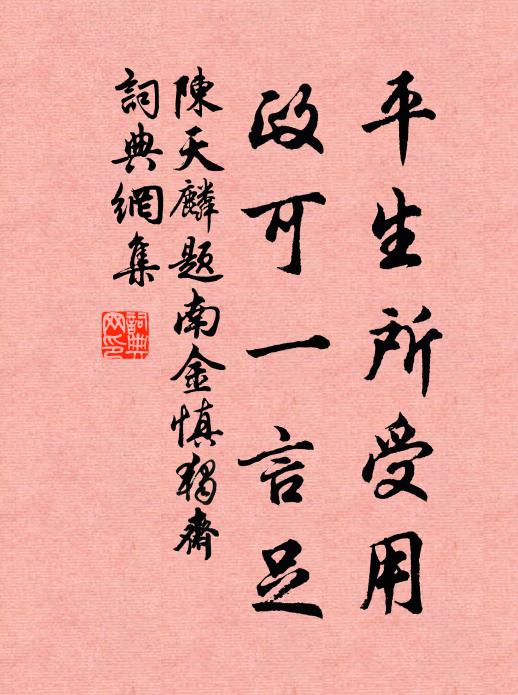 平生所受用
政可一言足
陳天麟題南金慎獨齋
詞典網集
詞典网印